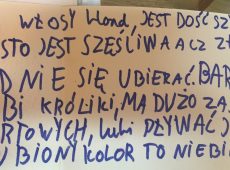 WŁOSY blond, JEST DOŚĆ SZ
STO JEST SZEŚLIWA A CZ Z
D NIE SIĘ UBIERAĆ. BAR
BI KRÓLIKI, MA DUŻO ZA
RTOWYCH, lubi PŁYWAĆ
UBIONY KOLOR TO NIEBI